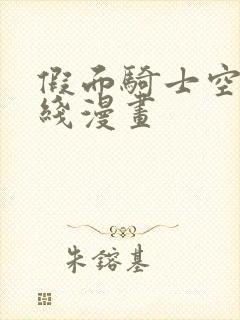 假而騎士空
綫漫畫
朱鎔基